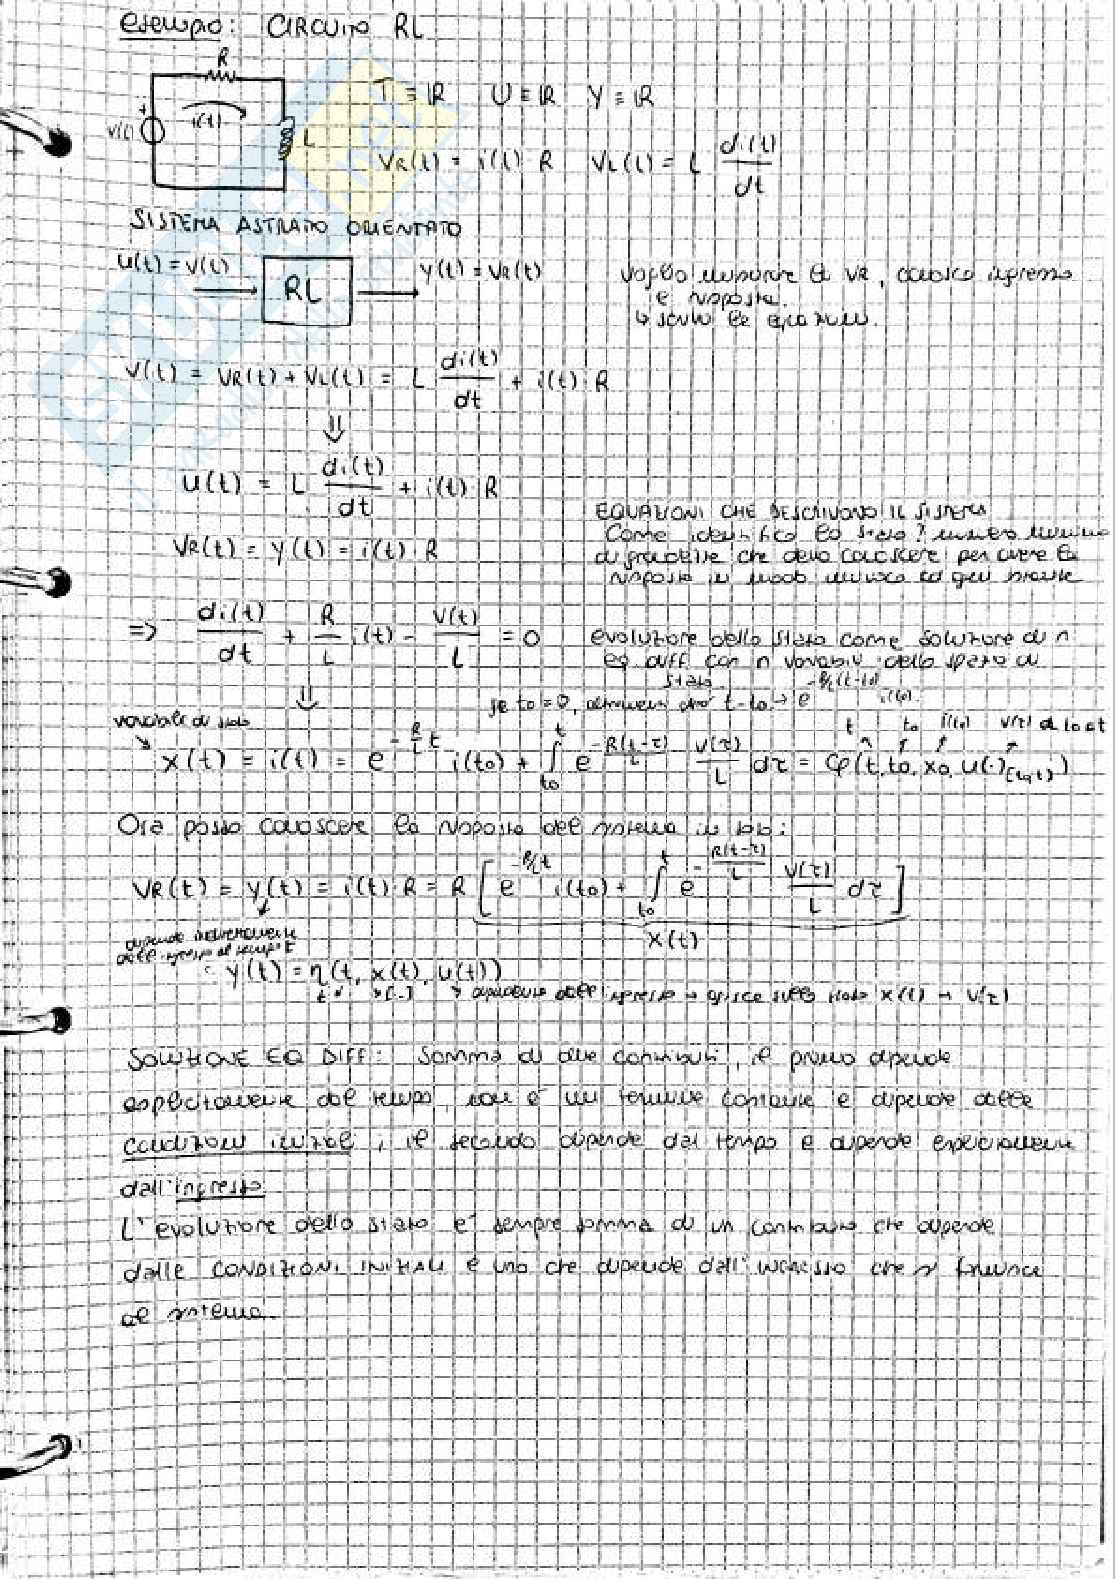 esempio: CIRCUITO RL
R
v(t) + i(t) L
T ≡ ℝ U ≡ ℝ Y ≡ ℝ
VR(t) = i(t) R VL(t) = L di(t)/dt
SISTEMA ASTRATTO ORIENTATO
u(t) = v(t) RL y(t) = VR(t)
voglio misurare la VR, conosco ingresso
e risposta.
↳ scrivo le equazioni.
V(t) = VR(t) + VL(t) = L di(t)/dt + i(t) R
⇓
u(t) = L di(t)/dt + i(t) R
EQUAZIONI CHE DESCRIVONO IL SISTEMA
VR(t) = y(t) = i(t) R
Come identifico lo stato? numero minimo
di grandezze che devo conoscere per avere la
risposta in modo univoco ad ogni istante
=> di(t)/dt + R/L i(t) - V(t)/L = 0
evoluzione dello stato come soluzione di n
eq. diff. con n variabili dello spazio di
stato.
⇓
se to = 0, altrimenti t-to → e^-R/L(t-to) i(to)
variabile di stato
t to i(to) v(τ) da to a t
x(t) = i(t) = e^-R/L t i(to) + ∫to^t e^-R(t-τ)/L V(τ)/L dτ = φ(t, to, xo, u(·)[to,t))
Ora posso conoscere la risposta del sistema in toto:
VR(t) = y(t) = i(t) R = R [e^-R/L t i(to) + ∫to^t e^-R(t-τ)/L V(τ)/L dτ]
x(t)
dipende indirettamente
dall'ingresso al tempo t
y(t) = η(t, x(t), u(t))
t [..] dipendenza dall'ingresso → agisce sullo stato x(t) → V(τ)
SOLUZIONE EQ DIFF: Somma di due contributi, il primo dipende
esplicitamente dal tempo, non è un termine costante e dipende dalle
condizioni iniziali, il secondo dipende dal tempo e dipende esplicitamente
dall'ingresso
L'evoluzione dello stato e' sempre somma di un contributo che dipende
dalle CONDIZIONI INIZIALI e uno che dipende dall'INGRESSO che si fornisce
al sistema.